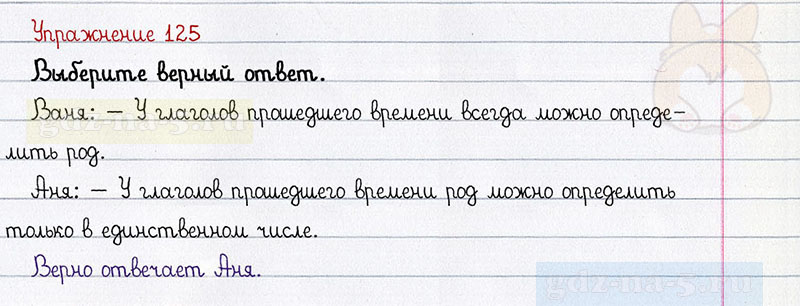 Упражнение 125
Выберите верный ответ.
Ваня: – У глаголов прошедшего времени всегда можно опреде–
лить род.
Аня: – У глаголов прошедшего времени род можно определить
только в единственном числе.
Верно отвечает Аня.
gdz-na-5.ru
gdz-na-5.ru